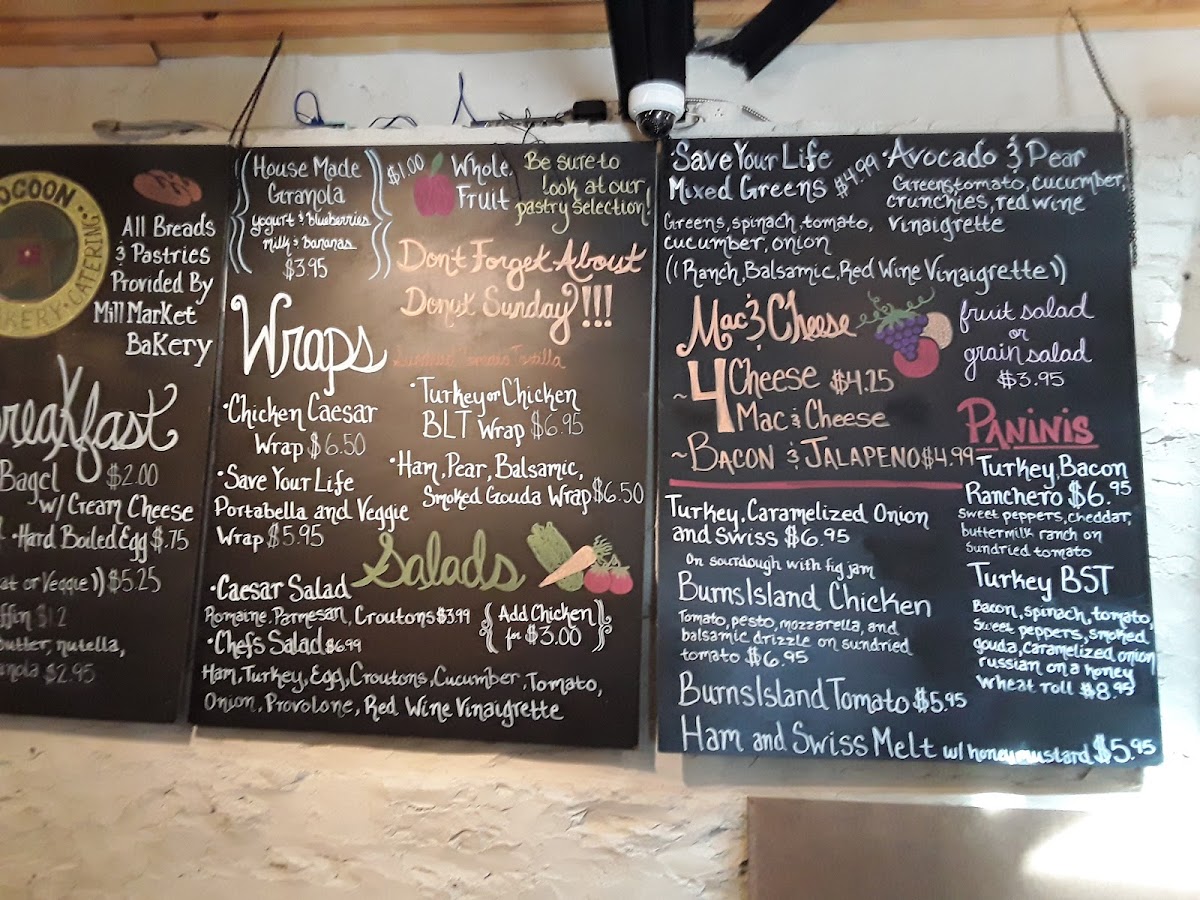 OCOON
KERY · CATERING
All Breads
& Pastries
Provided By
Mill Market
Bakery
Breakfast
Bagel $2.00
w/ Cream Cheese
· Hard Boiled Egg $.75
at or Veggie)) $5.25
ffin $12
butter, nutella,
anola $2.95
House Made
Granola
yogurt & blueberries
milk & bananas
$3.95
$1.00 Whole
Fruit
Be sure to
look at our
pastry selection!
Don't Forget About
Donut Sunday!!!
Wraps
Tomato Tortilla
· Chicken Caesar
Wrap $6.50
· Save Your Life
Portabella and Veggie
Wrap $5.95
· Turkey or Chicken
BLT Wrap $6.95
· Ham, Pear, Balsamic,
Smoked Gouda Wrap $6.50
Salads
· Caesar Salad
Romaine, Parmesan, Croutons $3.99
{ Add Chicken
for $3.00 }
· Chefs Salad $6.99
Ham, Turkey, Egg, Croutons, Cucumber, Tomato,
Onion, Provolone, Red Wine Vinaigrette
Save Your Life
Mixed Greens $4.99
Greens, spinach, tomato,
cucumber, onion
· Avocado & Pear
Greens tomato, cucumber,
crunchies, red wine
vinaigrette
((Ranch, Balsamic, Red Wine Vinaigrette))
Mac & Cheese
~ 4 Cheese $4.25
Mac & Cheese
~ Bacon & Jalapeno $4.99
fruit salad
or
grain salad
$3.95
Paninis
Turkey, Caramelized Onion
and Swiss $6.95
On sourdough with fig jam
BurnsIsland Chicken
Tomato, pesto, mozzarella, and
balsamic drizzle on sundried
tomato $6.95
BurnsIsland Tomato $5.95
Ham and Swiss Melt w/ honeymustard $5.95
Turkey, Bacon
Ranchero $6.95
sweet peppers, cheddar,
buttermilk ranch on
sundried tomato
Turkey BST
Bacon, spinach, tomato,
sweet peppers, smoked
gouda, caramelized onion
russian on a honey
wheat roll $8.95